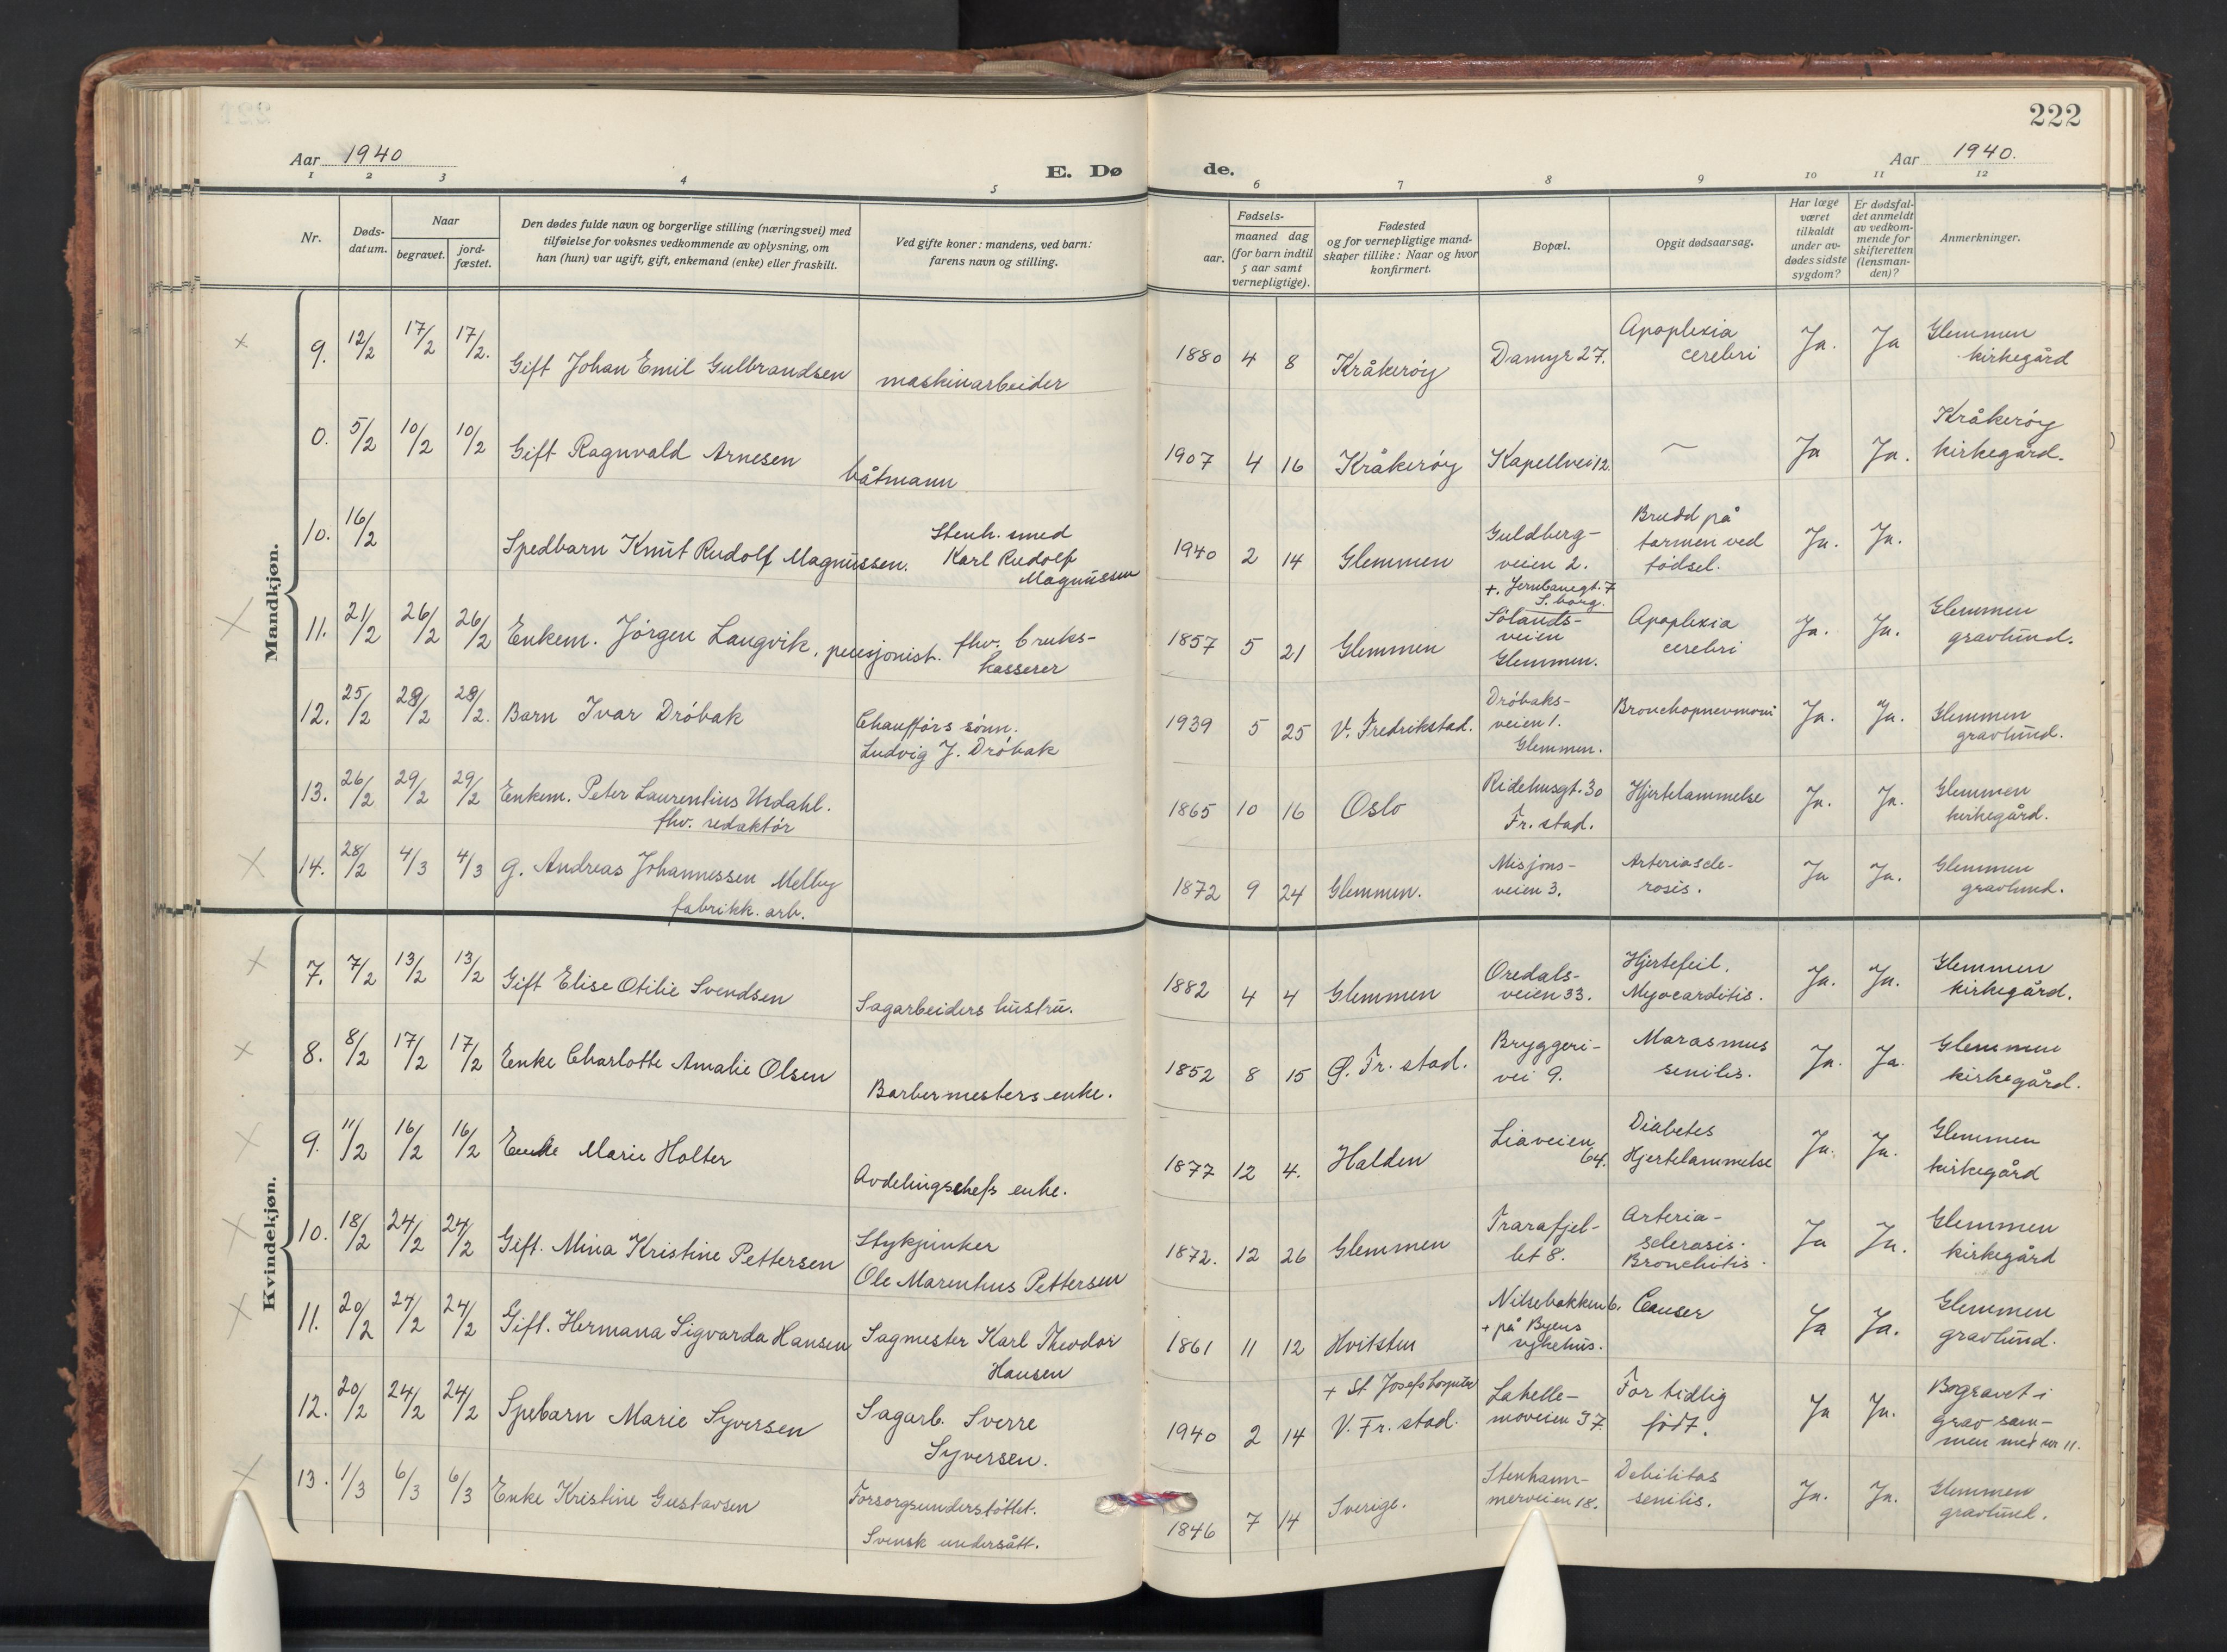 222
Aar 1940
E. Dø de.
Aar 1940.
1 2 3 4 5 6 7 8 9 10 11 12
Nr.
Døds-
datum.
Naar
begravet.
jord-
fæstet.
Den dødes fulde navn og borgerlige stilling (næringsvei) med
tilføielse for voksnes vedkommende av oplysning, om
han (hun) var ugift, gift, enkemand (enke) eller fraskilt.
Ved gifte koner: mandens, ved barn:
farens navn og stilling.
Fødsels-
aar.
maaned dag
(for barn indtil
5 aar samt
vernepligtige).
Fødested
og for vernepligtige mand-
skaper tillike: Naar og hvor
konfirmert.
Bopæl.
Opgit dødsaarsag.
Har læge
været
tilkaldt
under av-
dødes sidste
sygdom?
Er dødsfal-
det anmeldt
av vedkom-
mende for
skifteretten
(lensman-
den)?
Anmerkninger.
Mandkjøn.
9. 12/2 17/2 17/2. Gift Johan Emil Gulbrandsen maskinarbeider
1880 4 8 Kråkerøy Damyr 27. Apoplexia
cerebri
Ja. Ja Glemmen
kirkegård
0. 5/2 10/2 10/2 Gift Ragnvald Arnesen
båtmann
1907 4 16 Kråkerøy Kapellvei 12. ~ Ja Ja. Kråkerøy
kirkegård.
10. 16/2 Spedbarn Knut Rudolf Magnussen.
Stenh. smed
Karl Rudolf
Magnussen
1940 2 14 Glemmen Guldberg-
veien 2.
Brudd på
tarmen ved
fødsel.
Ja. Ja.
11. 21/2 26/2 26/2 Enkem. Jørgen Langvik, pensjonist. fhv. bruks-
kasserer
1857 5 21 Glemmen +. Jernbanegt. 7
S. borg.
Sølands-
veien
Glemmen.
Apoplexia
cerebri
Ja. Ja. Glemmen
gravlund.
12. 25/2 28/2 28/2. Barn Ivar Drøbak
Chaufførs sønn.
Ludvig J. Drøbak
1939 5 25 V. Fredrikstad. Drøbaks-
veien 1.
Glemmen.
Bronchopnevmoni Ja. Ja. Glemmen
gravlund.
13. 26/2 29/2 29/2 Enkem. Peter Laurentius Urdahl.
fhv. redaktør
1865 10 16 Oslo Ridehusgt. 30
Fr. stad.
Hjertelammelse Ja. Ja. Glemmen
kirkegård.
14. 28/2 4/3 4/3 g. Andreas Johannessen Melby
fabrikk. arb.
1872 9 24 Glemmen. Misjons-
veien 3.
Arteriascle-
rosis.
Ja Ja. Glemmen
gravlund.
Kvindekjøn.
7. 7/2 13/2 13/2 Gift Elise Otilie Svendsen Sagarbeiders hustru.
1882 4 4 Glemmen Oredals-
veien 33.
Hjertefeil.
Myocarditis.
Ja. Ja. Glemmen
kirkegård.
8. 8/2 17/2 17/2 Enke Charlotte Amalie Olsen
Barbermesters enke.
1852 8 15 G. Fr. stad. Bryggeri-
vei 9.
Marasmus
senilis.
Ja. Ja. Glemmen
kirkegård.
9. 11/2 16/2 16/2 Enke Marie Holter
Avdelingschefs enke.
1877 12 4. Halden Liaveien
64.
Diabetes
Hjertelammelse
Ja. Ja. Glemmen
kirkegård
10. 18/2 24/2 24/2 Gift. Mina Kristine Pettersen Stykjunker
Ole Marenhus Pettersen
1872. 12 26 Glemmen Trarafjel-
let 8.
Arteria-
sclerosis.
Bronchitis.
Ja Ja. Glemmen
kirkegård
11. 20/2 24/2 24/2 Gift. Hermana Sigvarda Hansen Sagmester Karl Theodor
Hansen
1861 11 12 Hvitsten Nilsebakken 6.
+ på Byens
sykehus.
Cancer Ja Ja. Glemmen
gravlund.
12. 20/2 24/2 24/2 Spebarn Marie Syversen Sagarb. Sverre
Syversen.
1940 2 14 + St Josefs hospital
V. Fr. stad.
Lahelle-
moveien 37.
For tidlig
født.
Ja Ja. Begravet i
grav sam-
men med nr 11.
13. 1/3 6/3 6/3 Enke Kristine Gustavsen Forsorgsunderstøttet.
Svensk undersått.
1846 7 14 Sverige. Stenham-
merveien 18.
Debilitas
senilis.
Ja. Ja. Glemmen
gravlund.